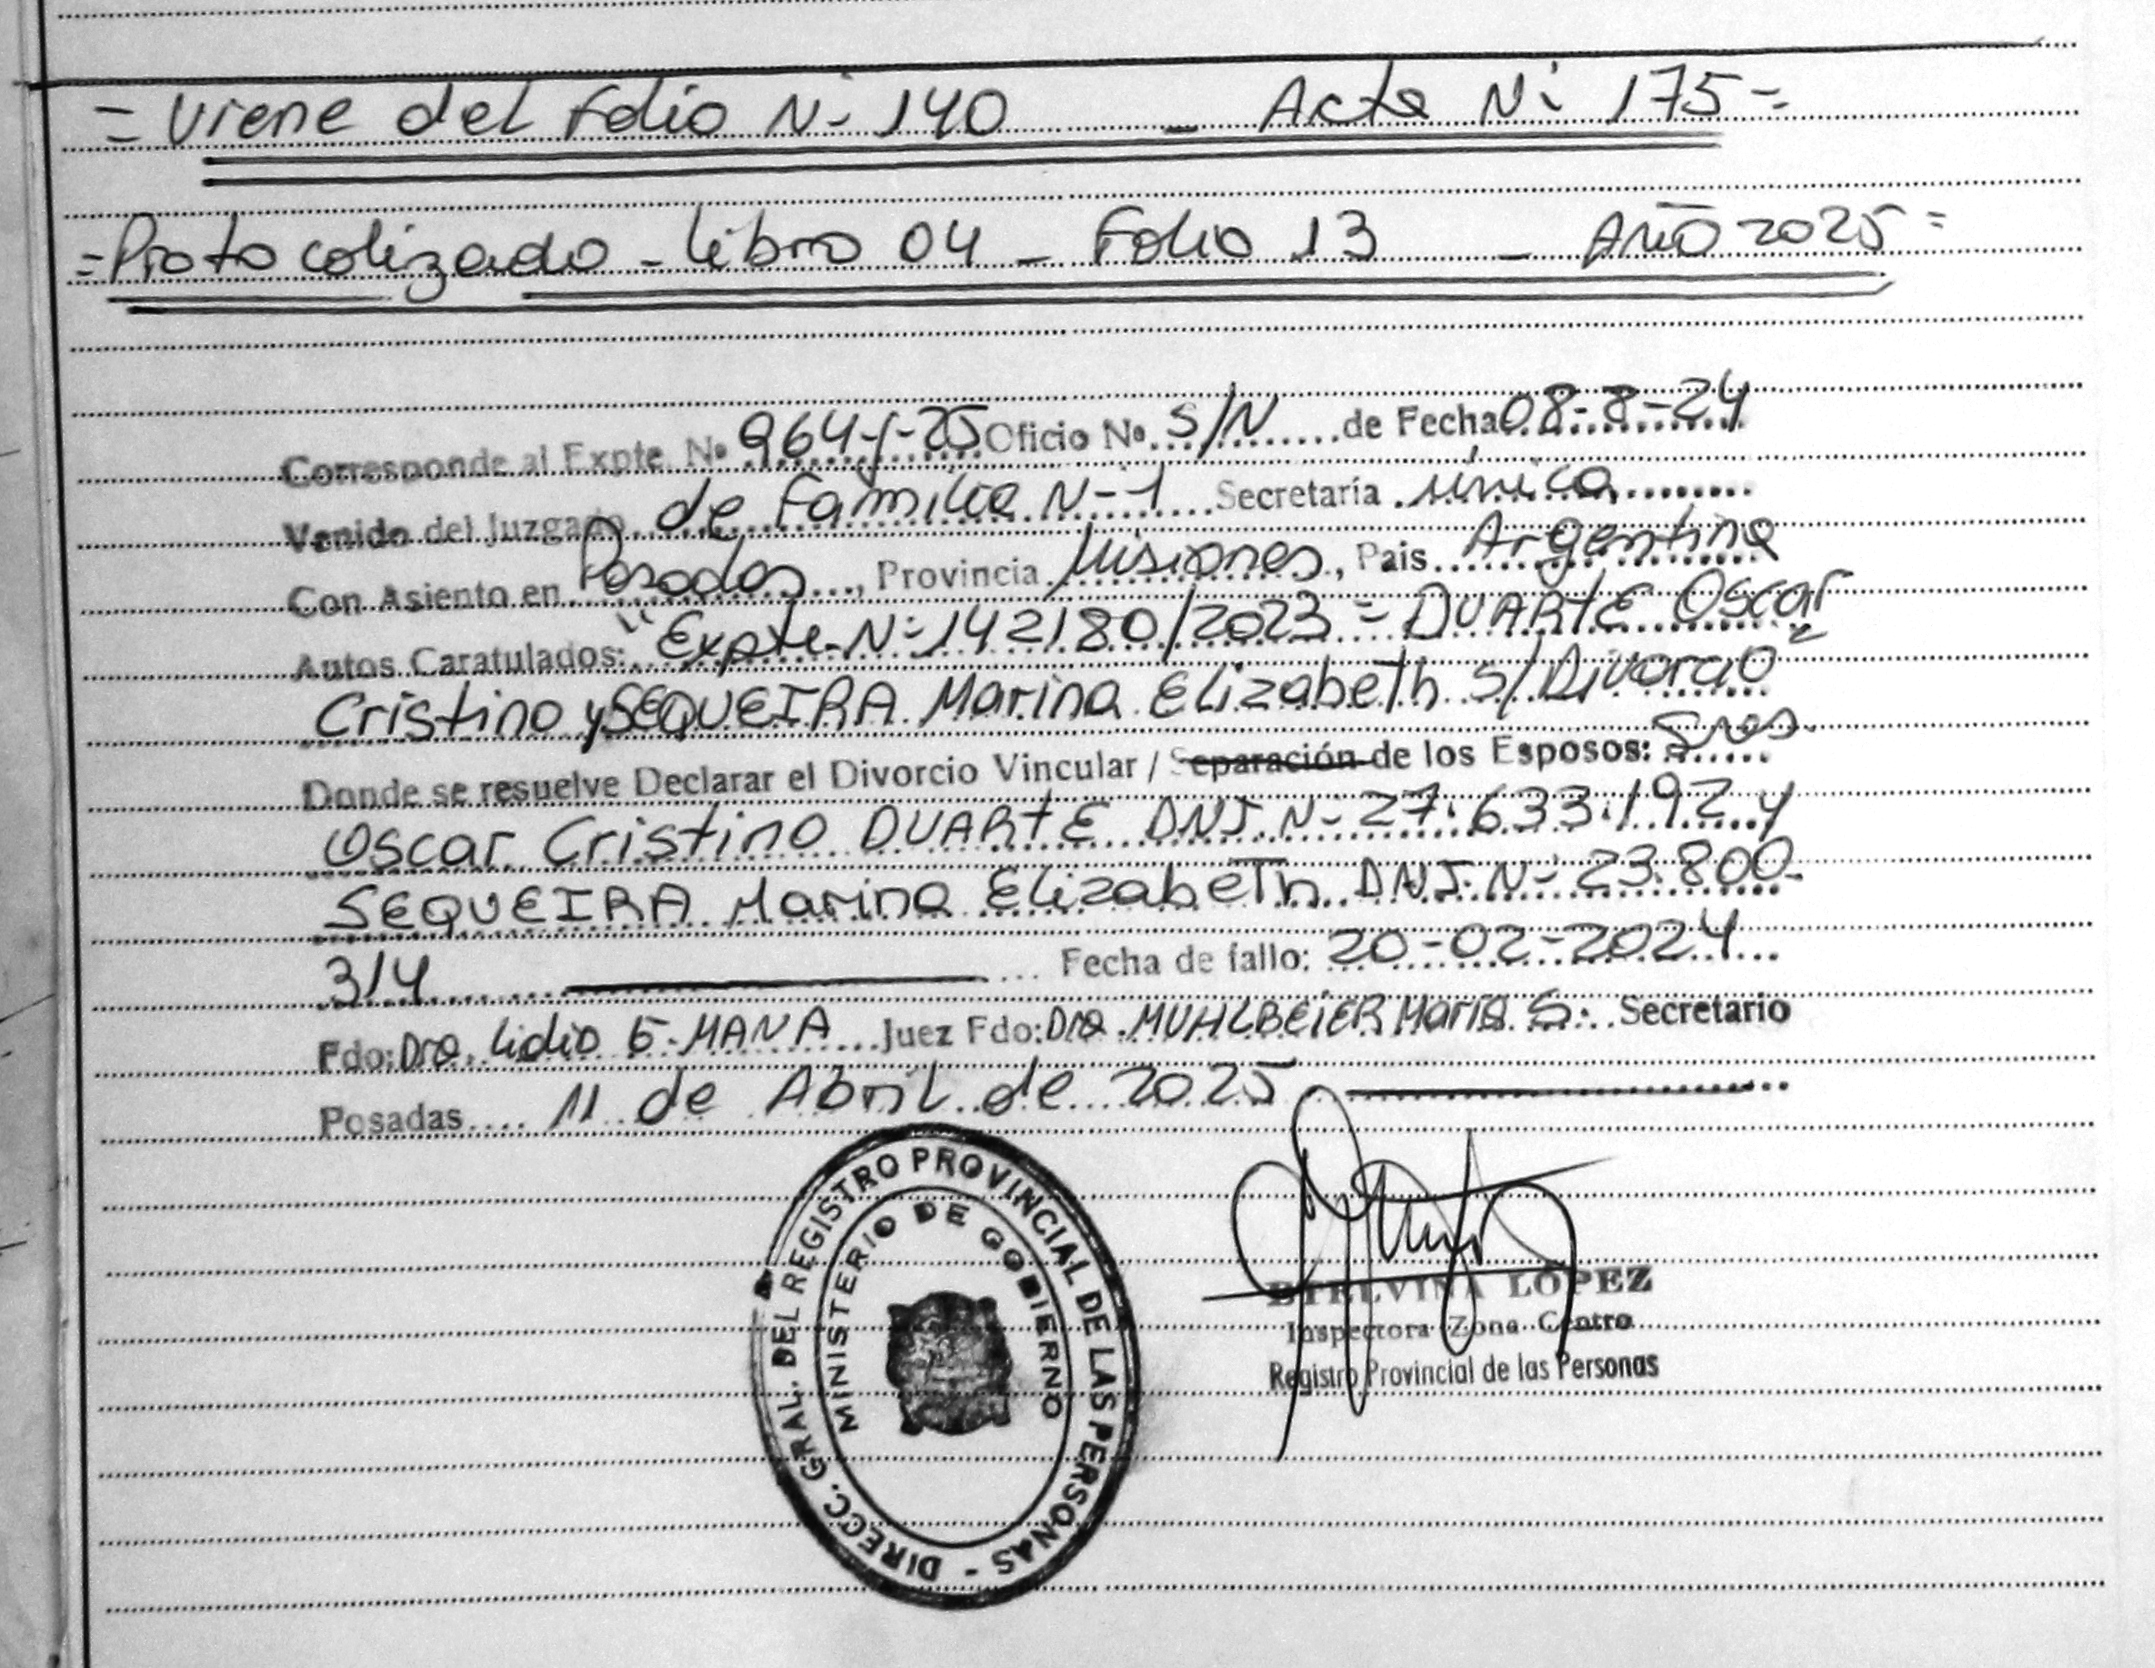 = Viene del Folio N- 140 - Acta N- 175 =
= Protocolizado - libro 04 - Folio 13 - AÑO 2025 =
Corresponde al Expte. Nº 964-J-25 Oficio Nº S/N de Fecha 08-8-24
Venido del Juzgado de Familia N-1 Secretaría única
Con Asiento en Posadas, Provincia Misiones, Pais Argentina
Autos Caratulados: "Expte N- 142180/2023 - DUARTE Oscar
Cristino y SEQUEIRA Marina Elizabeth S/ Divorcio"
Donde se resuelve Declarar el Divorcio Vincular / Separación de los Esposos: Sres.
Oscar Cristino DUARTE DNI. N- 27.633.192 y
SEQUEIRA Marina Elizabeth DNI. N- 23.800-
314 Fecha de fallo: 20-02-2024
Fdo: Dra. Lidia E. MANA Juez Fdo: Dra. MUHLBEIER María S. Secretario
Posadas 11 de Abril de 2025
DIRECC. GRAL. DEL REGISTRO PROVINCIAL DE LAS PERSONAS -
MINISTERIO DE GOBIERNO
ETELVINA LOPEZ
Inspectora Zona Centro
Registro Provincial de las Personas